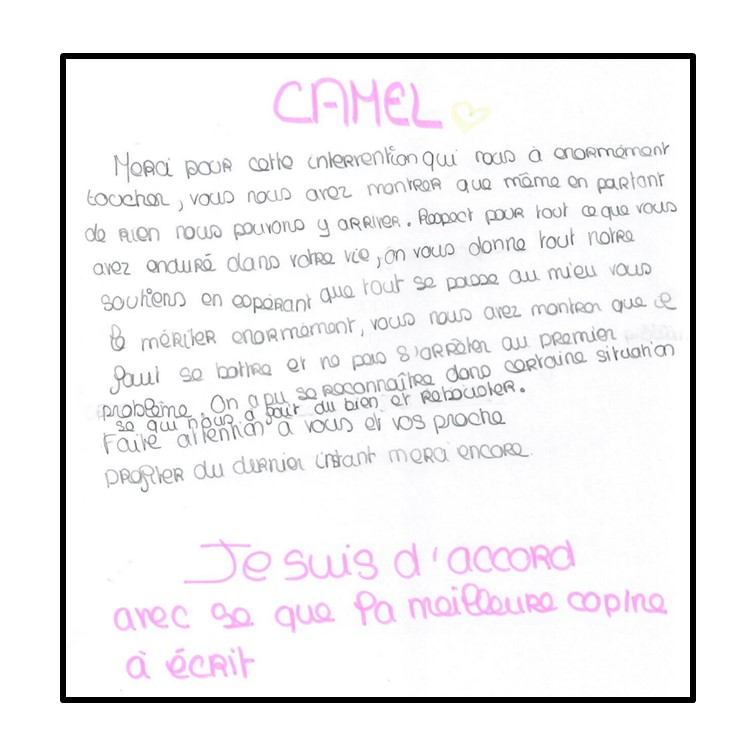 CAMEL
Merci pour cette intervention qui nous à enormément
toucher, vous nous avez montrer que même en partant
de rien nous pouvons y arriver. Respect pour tout ce que vous
avez enduré dans votre vie, on vous donne tout notre
soutiens en espérant que tout se passe au mieu vous
le mériter enormément, vous nous avez montrer que
faut se battre et ne pas s'arrêter au premier
problème. On a pu se reconnaître dans certaine situation
se qui nous a fait du bien et rebouster.
Faite attention à vous et vos proche
profiter du dernier instant merci encore
Je suis d'accord
avec se que la meilleure copine
à écrit